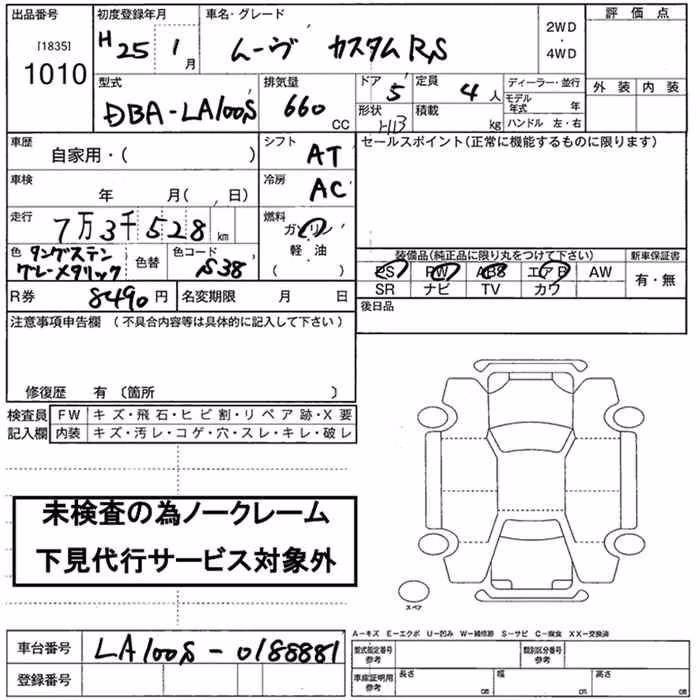 出品番号 初度登録年月 車名・グレード 評価点
[1835] H25 1月 ムーヴ カスタムRS 2WD・4WD
1010
型式 排気量 ドア 5 定員 4人 ディーラー・並行 外装 内装
DBA-LA100S 660 CC 形状 積載 kg モデル年式 年
ハンドル 左・右
車歴 シフト セールスポイント(正常に機能するものに限ります)
自家用・( ) AT
車検 冷房
年 月( 、日) AC
走行 燃料
7万3千528km ガソリン
色 タングステングレーメタリック 色替 色コード S38 軽油 ( )
装備品(純正品に限り丸をつけて下さい) 新車保証書
PS PW ABS エアB AW 有・無
SR ナビ TV カワ
R券 8490円 名変期限 月 日 後日品
注意事項申告欄 (不具合内容等は具体的に記入して下さい)
修復歴 有 (箇所 )
検査員 FW キズ・飛石・ヒビ割・リペア跡・X要
記入欄 内装 キズ・汚レ・コゲ・穴・スレ・キレ・破レ
未検査の為ノークレーム
下見代行サービス対象外
スペア
A-キズ E-エクボ U-凹み W-補修跡 S-サビ C-腐食 XX-交換済
車台番号 LA100S-0188881 型式指定番号 参考 類別区分番号 参考
登録番号 車庫証明用 参考 長さ cm 幅 cm 高さ cm